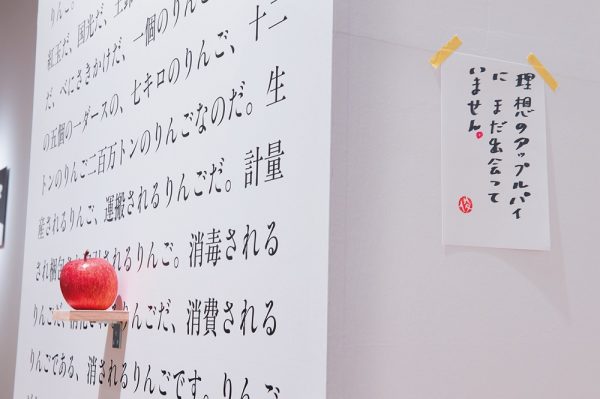 りんご。
紅玉だ、国光だ、王鈴
だ、べにさきがけだ、一個のりんご
の五個の一ダースの、七キロのりんご、十二
トンのりんご二百万トンのりんごなのだ。生
産されるりんご、運搬されるりんごだ。計量
され梱包 されるりんご。消毒される
りんごだ、消化されるりんごだ、消費される
りんごである、消されるりんごです。りんご
理想のアップルパイ
に まだ出会って
いません。